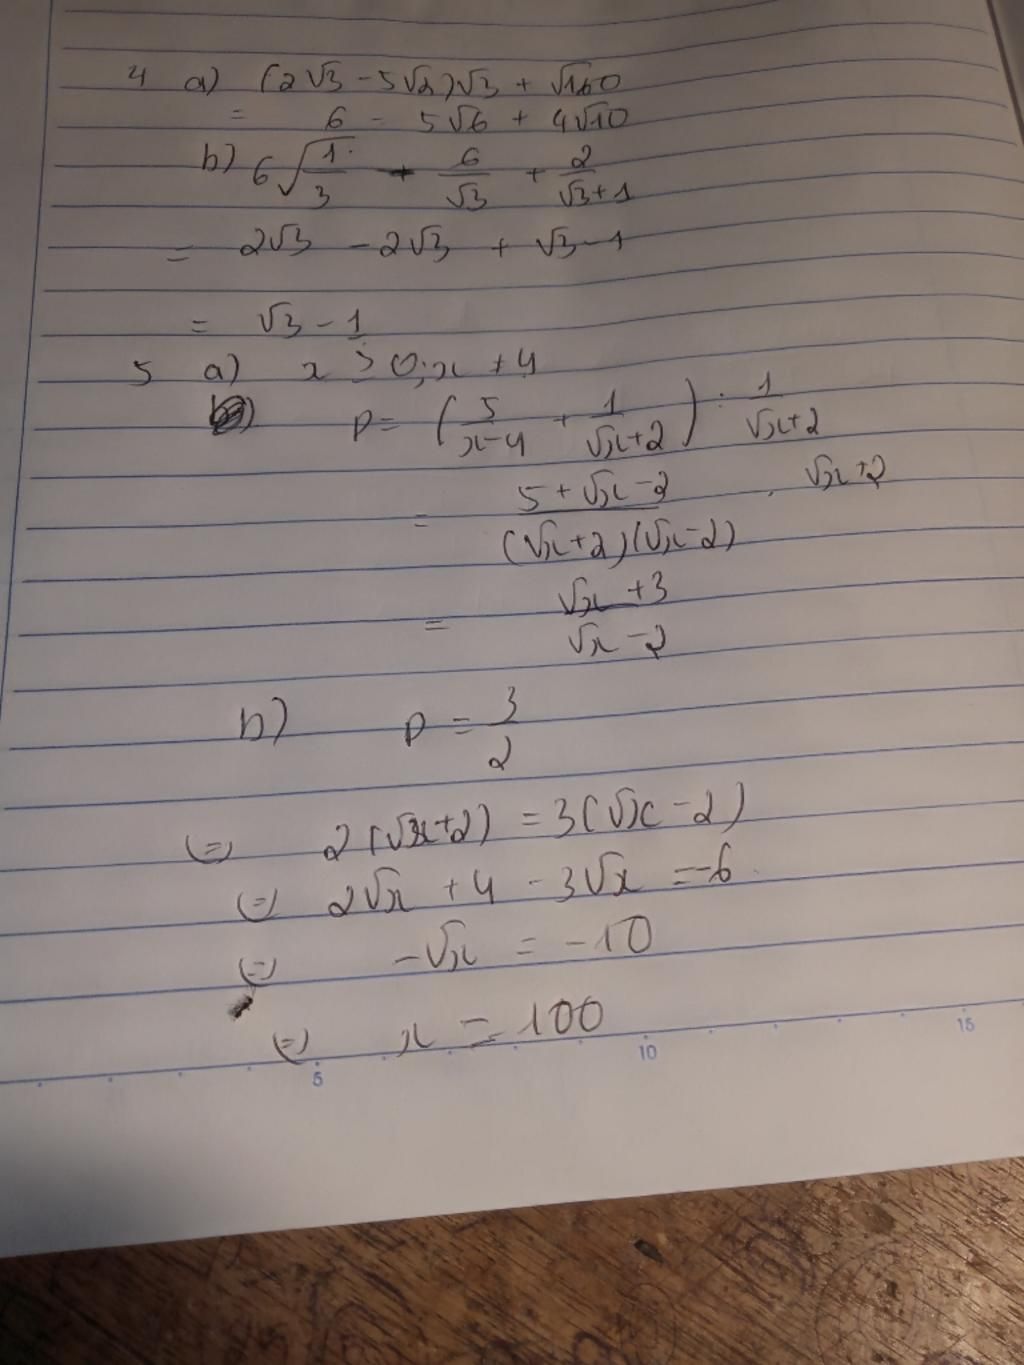 4 a) (2√3 - 5√2)√3 + √160
= 6 - 5√6 + 4√10
b) 6√(1/3) - 6/√3 + 2/(√3+1)
= 2√3 - 2√3 + √3-1
= √3 - 1
5 a) x ≥ 0; x ≠ 4
P = (5/(x-4) + 1/(√x+2)) : 1/(√x+2)
= (5+√x-2)/((√x+2)(√x-2)) . √x+2
= (√x+3)/(√x-2)
b) P = 3/2
(=) 2(√x+2) = 3(√x-2)
(=) 2√x + 4 - 3√x = -6
(=) -√x = -10
(=) x = 100
5 10 15